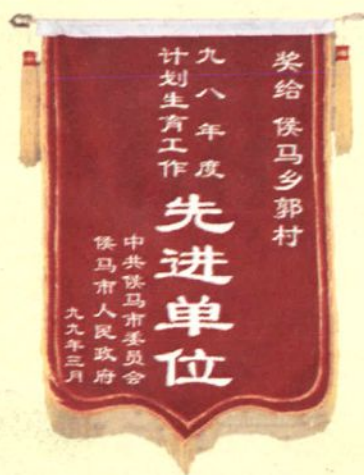 奖给 侯马乡郭村
九八年度
计划生育工作
先进单位
中共侯马市委员会
侯马市人民政府
九九年三月